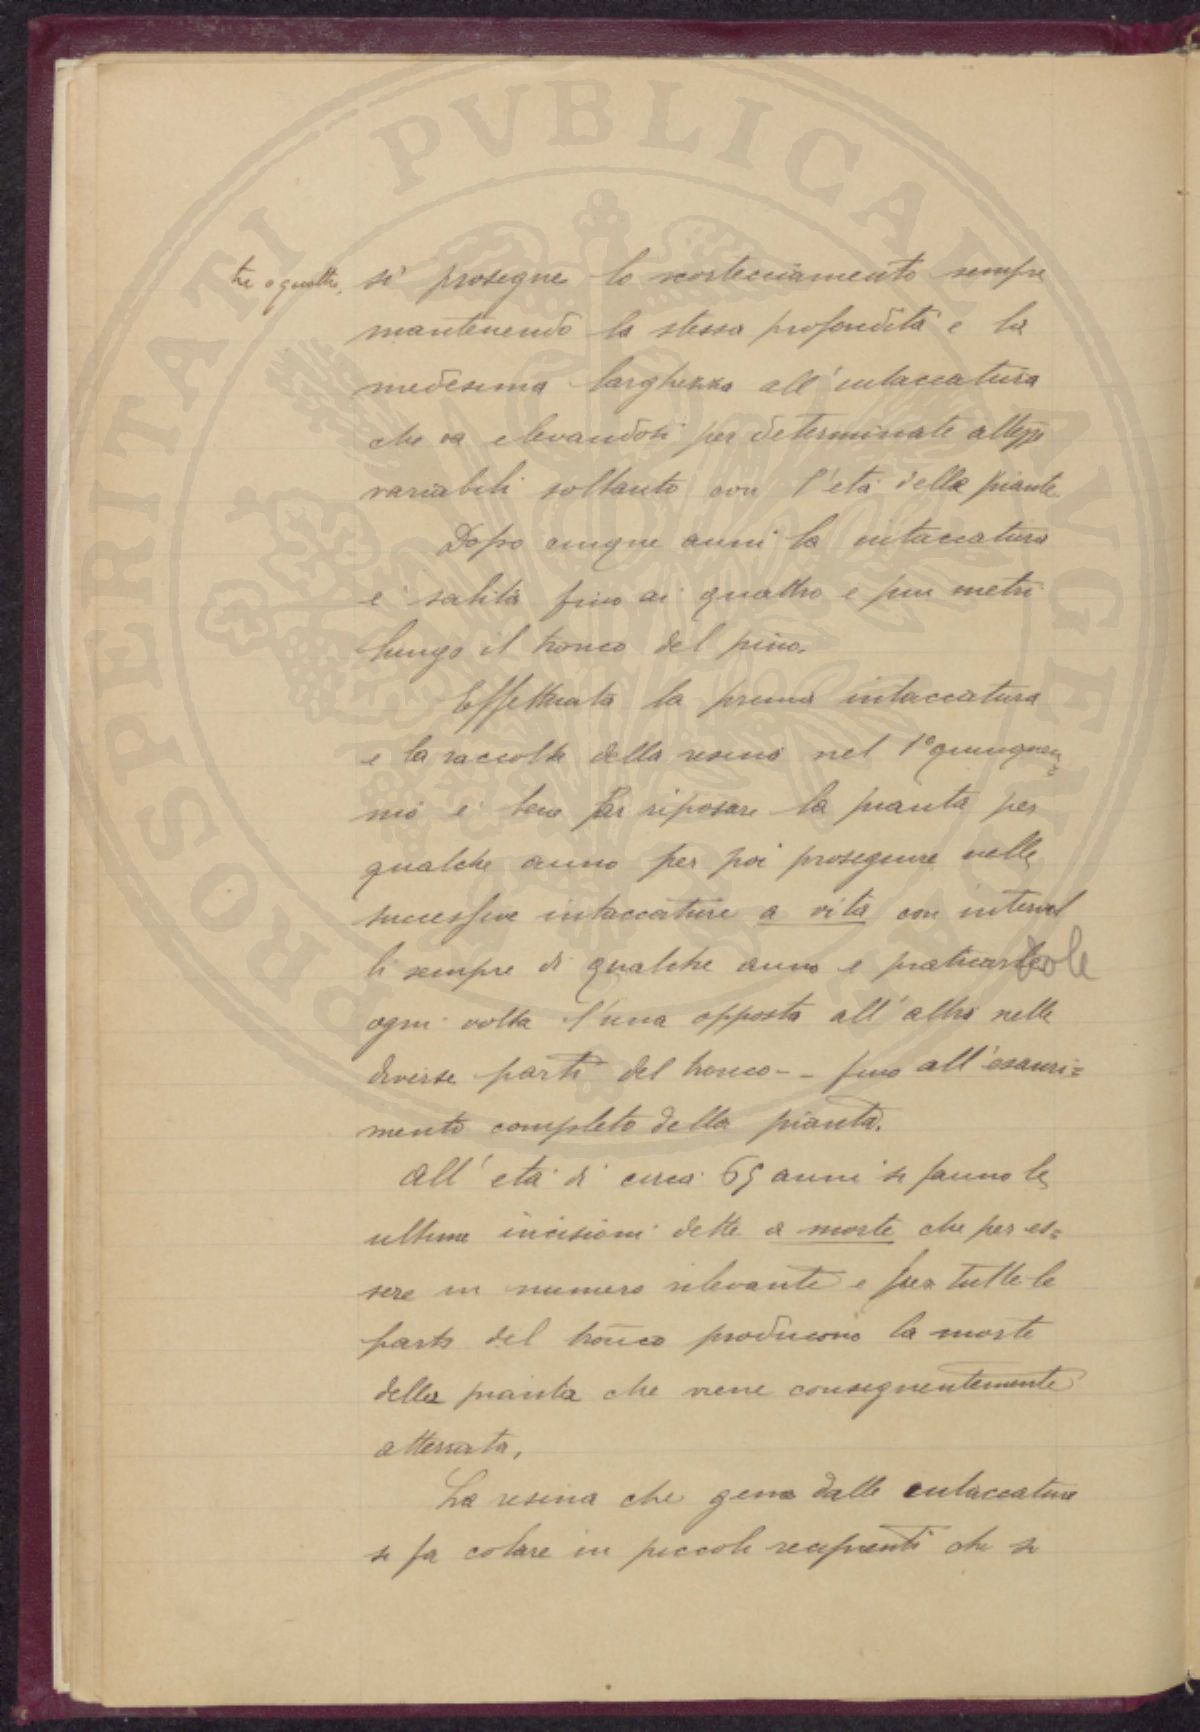 PROSPERITATI PVBLICAE AVGENDAE
tre o quattro, si prosegue lo scortecciamento sempre
mantenendo la stessa profondità e la
medesima larghezza all'intaccatura
che va elevandosi per determinate altezze
variabili soltanto con l'età delle piante.
Dopo cinque anni la intaccatura
è salita fino ai quattro e più metri
lungo il tronco del pino.
Effettuata la prima intaccatura
e la raccolta della resina nel 1° quinquen=
nio è bene far riposare la pianta per
qualche anno per poi proseguire nelle
successive intaccature a vita con interval
li sempre di qualche anno e praticandole
ogni volta l'una opposta all'altra nelle
diverse parti del tronco -- fino all'esauri=
mento completo della pianta.
All'età di circa 65 anni si fanno le
ultime incisioni dette a morte che per es=
sere in numero rilevante e per tutte le
parti del tronco producono la morte
della pianta che viene conseguentemente
atterrata.
La resina che geme dalle intaccature
si fa colare in piccoli recipienti che si